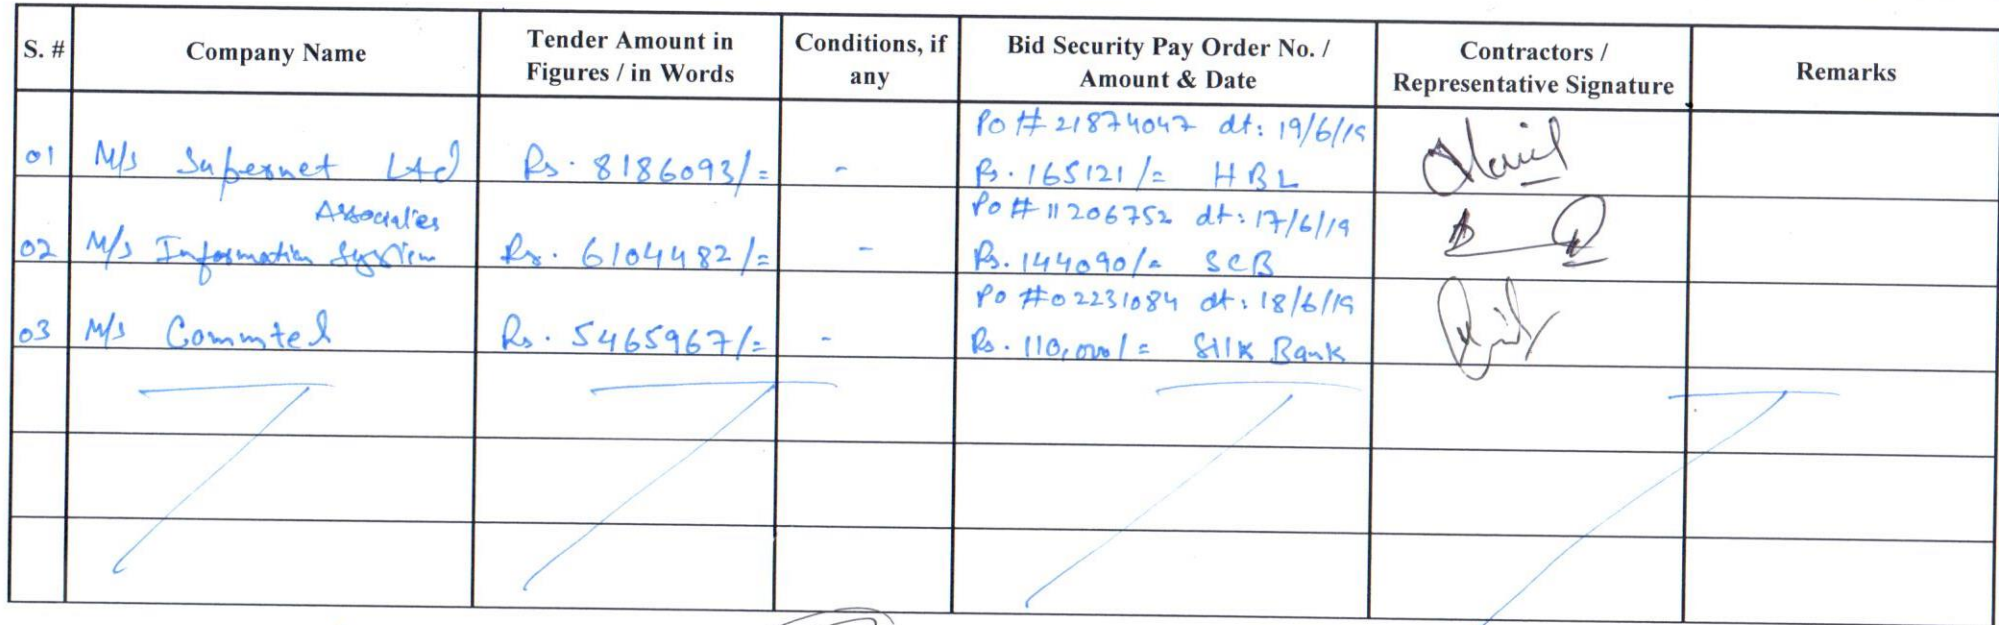 S. #
Company Name
Tender Amount in
Figures / in Words
Conditions, if
any
Bid Security Pay Order No. /
Amount & Date
Contractors /
Representative Signature
Remarks
01 M/s Supernet Ltd Rs. 8186093/= -
Po # 21874047 dt: 19/6/19
Rs. 165121/= HBL
02 M/s Information System Associates Rs. 6104482/= -
Po # 11206752 dt: 17/6/19
Rs. 144090/= SCB
03 M/s Commtel Rs. 5465967/= -
Po #02231084 dt: 18/6/19
Rs. 110,000/= Silk Bank